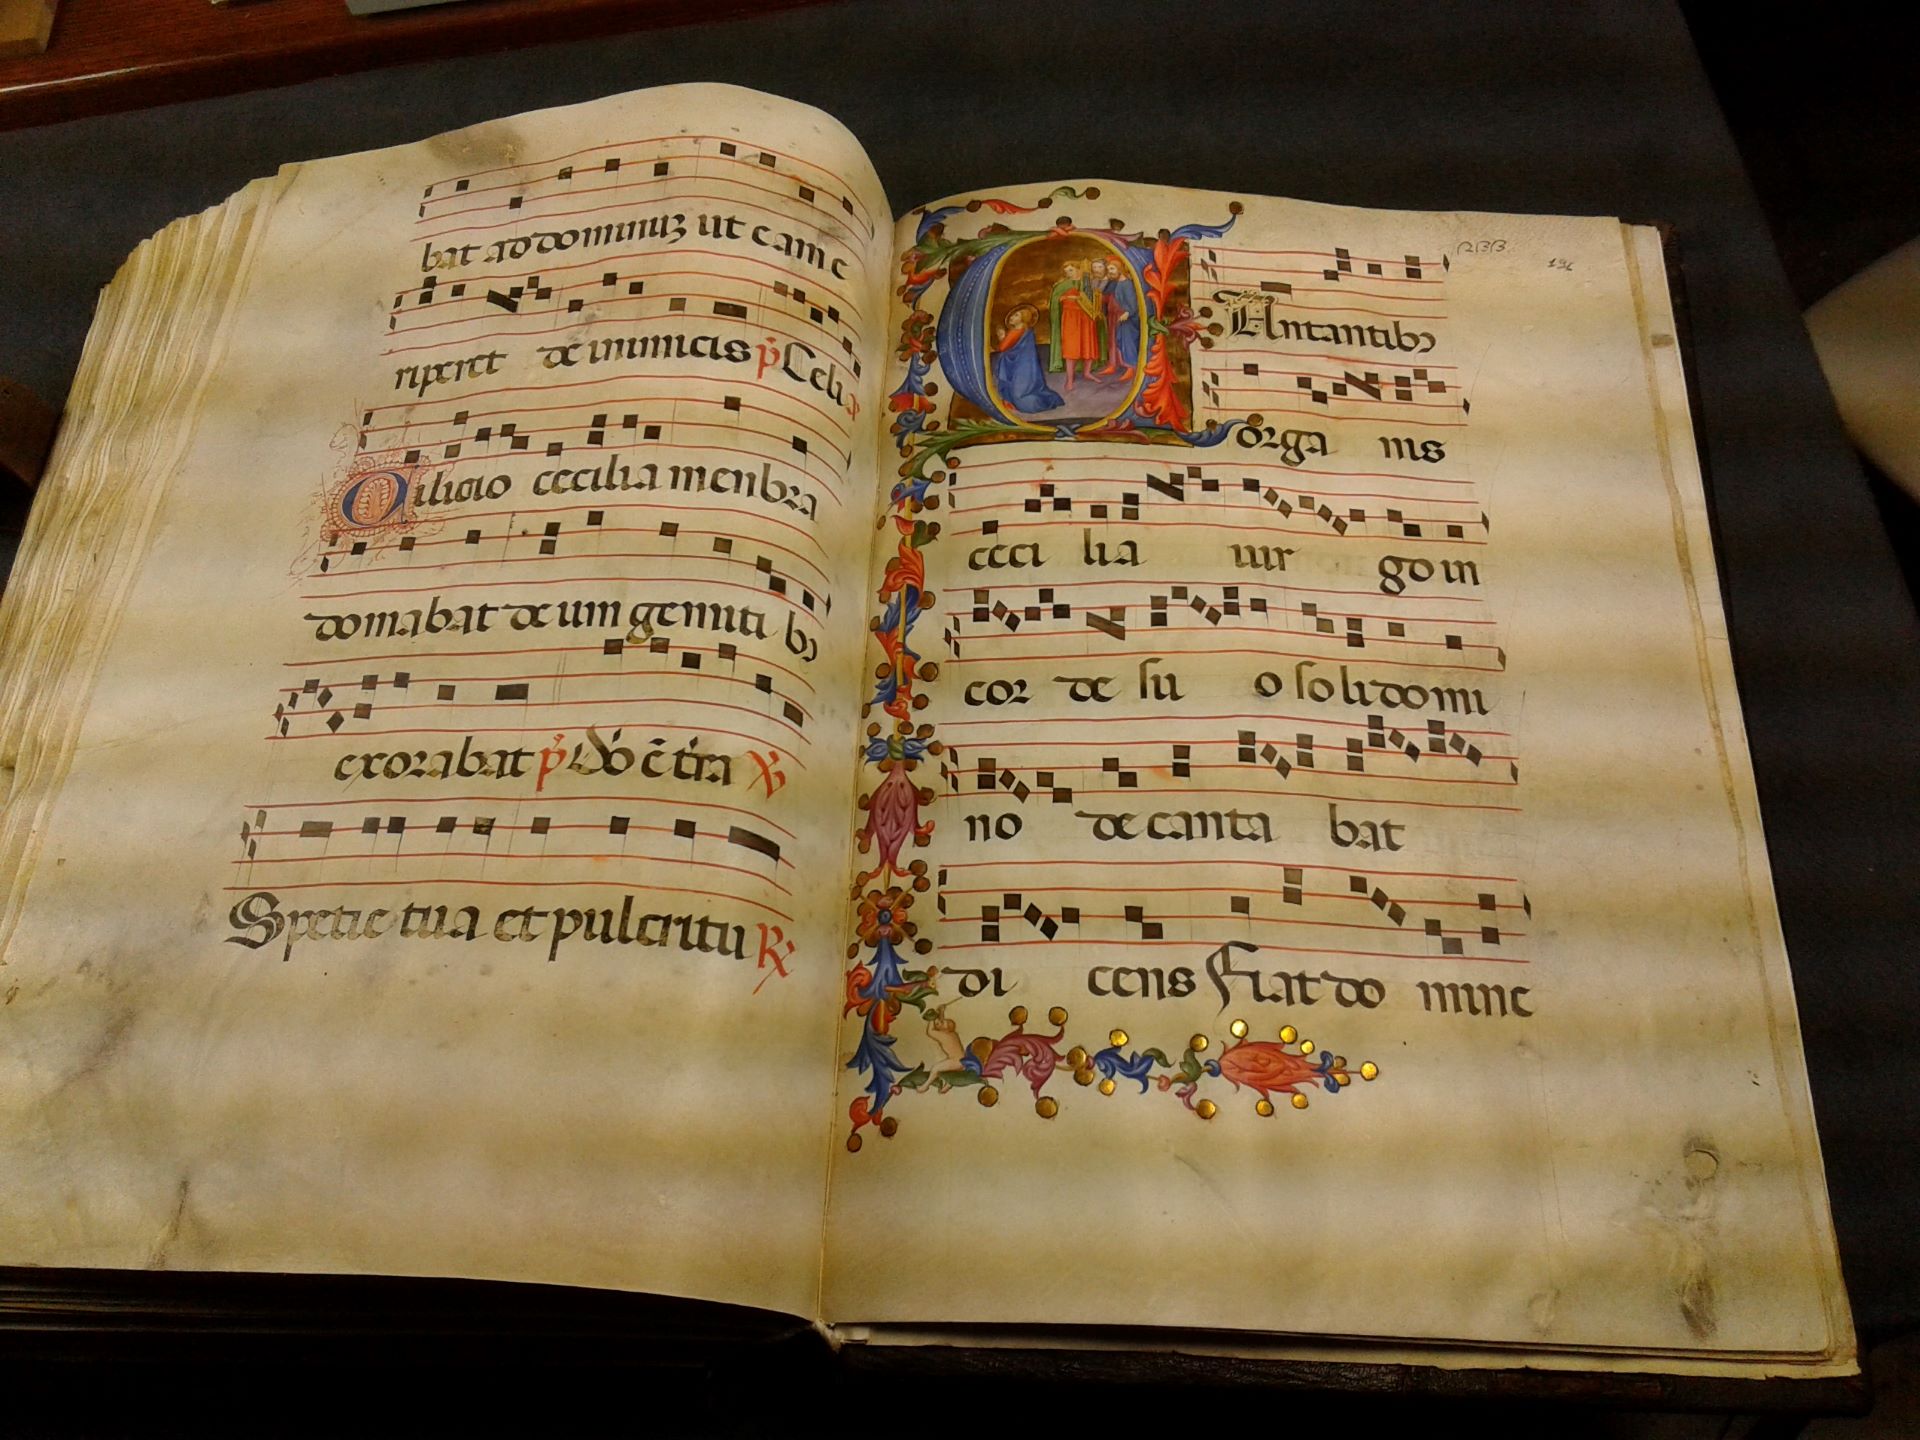 bat ad dominuz ut eam e
riperet de inimicis p̄ Celi
Cilicio cecilia menbra
domabat deum gemitibꝫ
exorabat p̄ Dō ē t̄ra ℣
Spetie tua et pulcritu ℟
RBB 196
Cantantibꝫ
orga nis
ceci lia uir go in
cor de su o soli domi
no decanta bat
di cens Fiat do mine